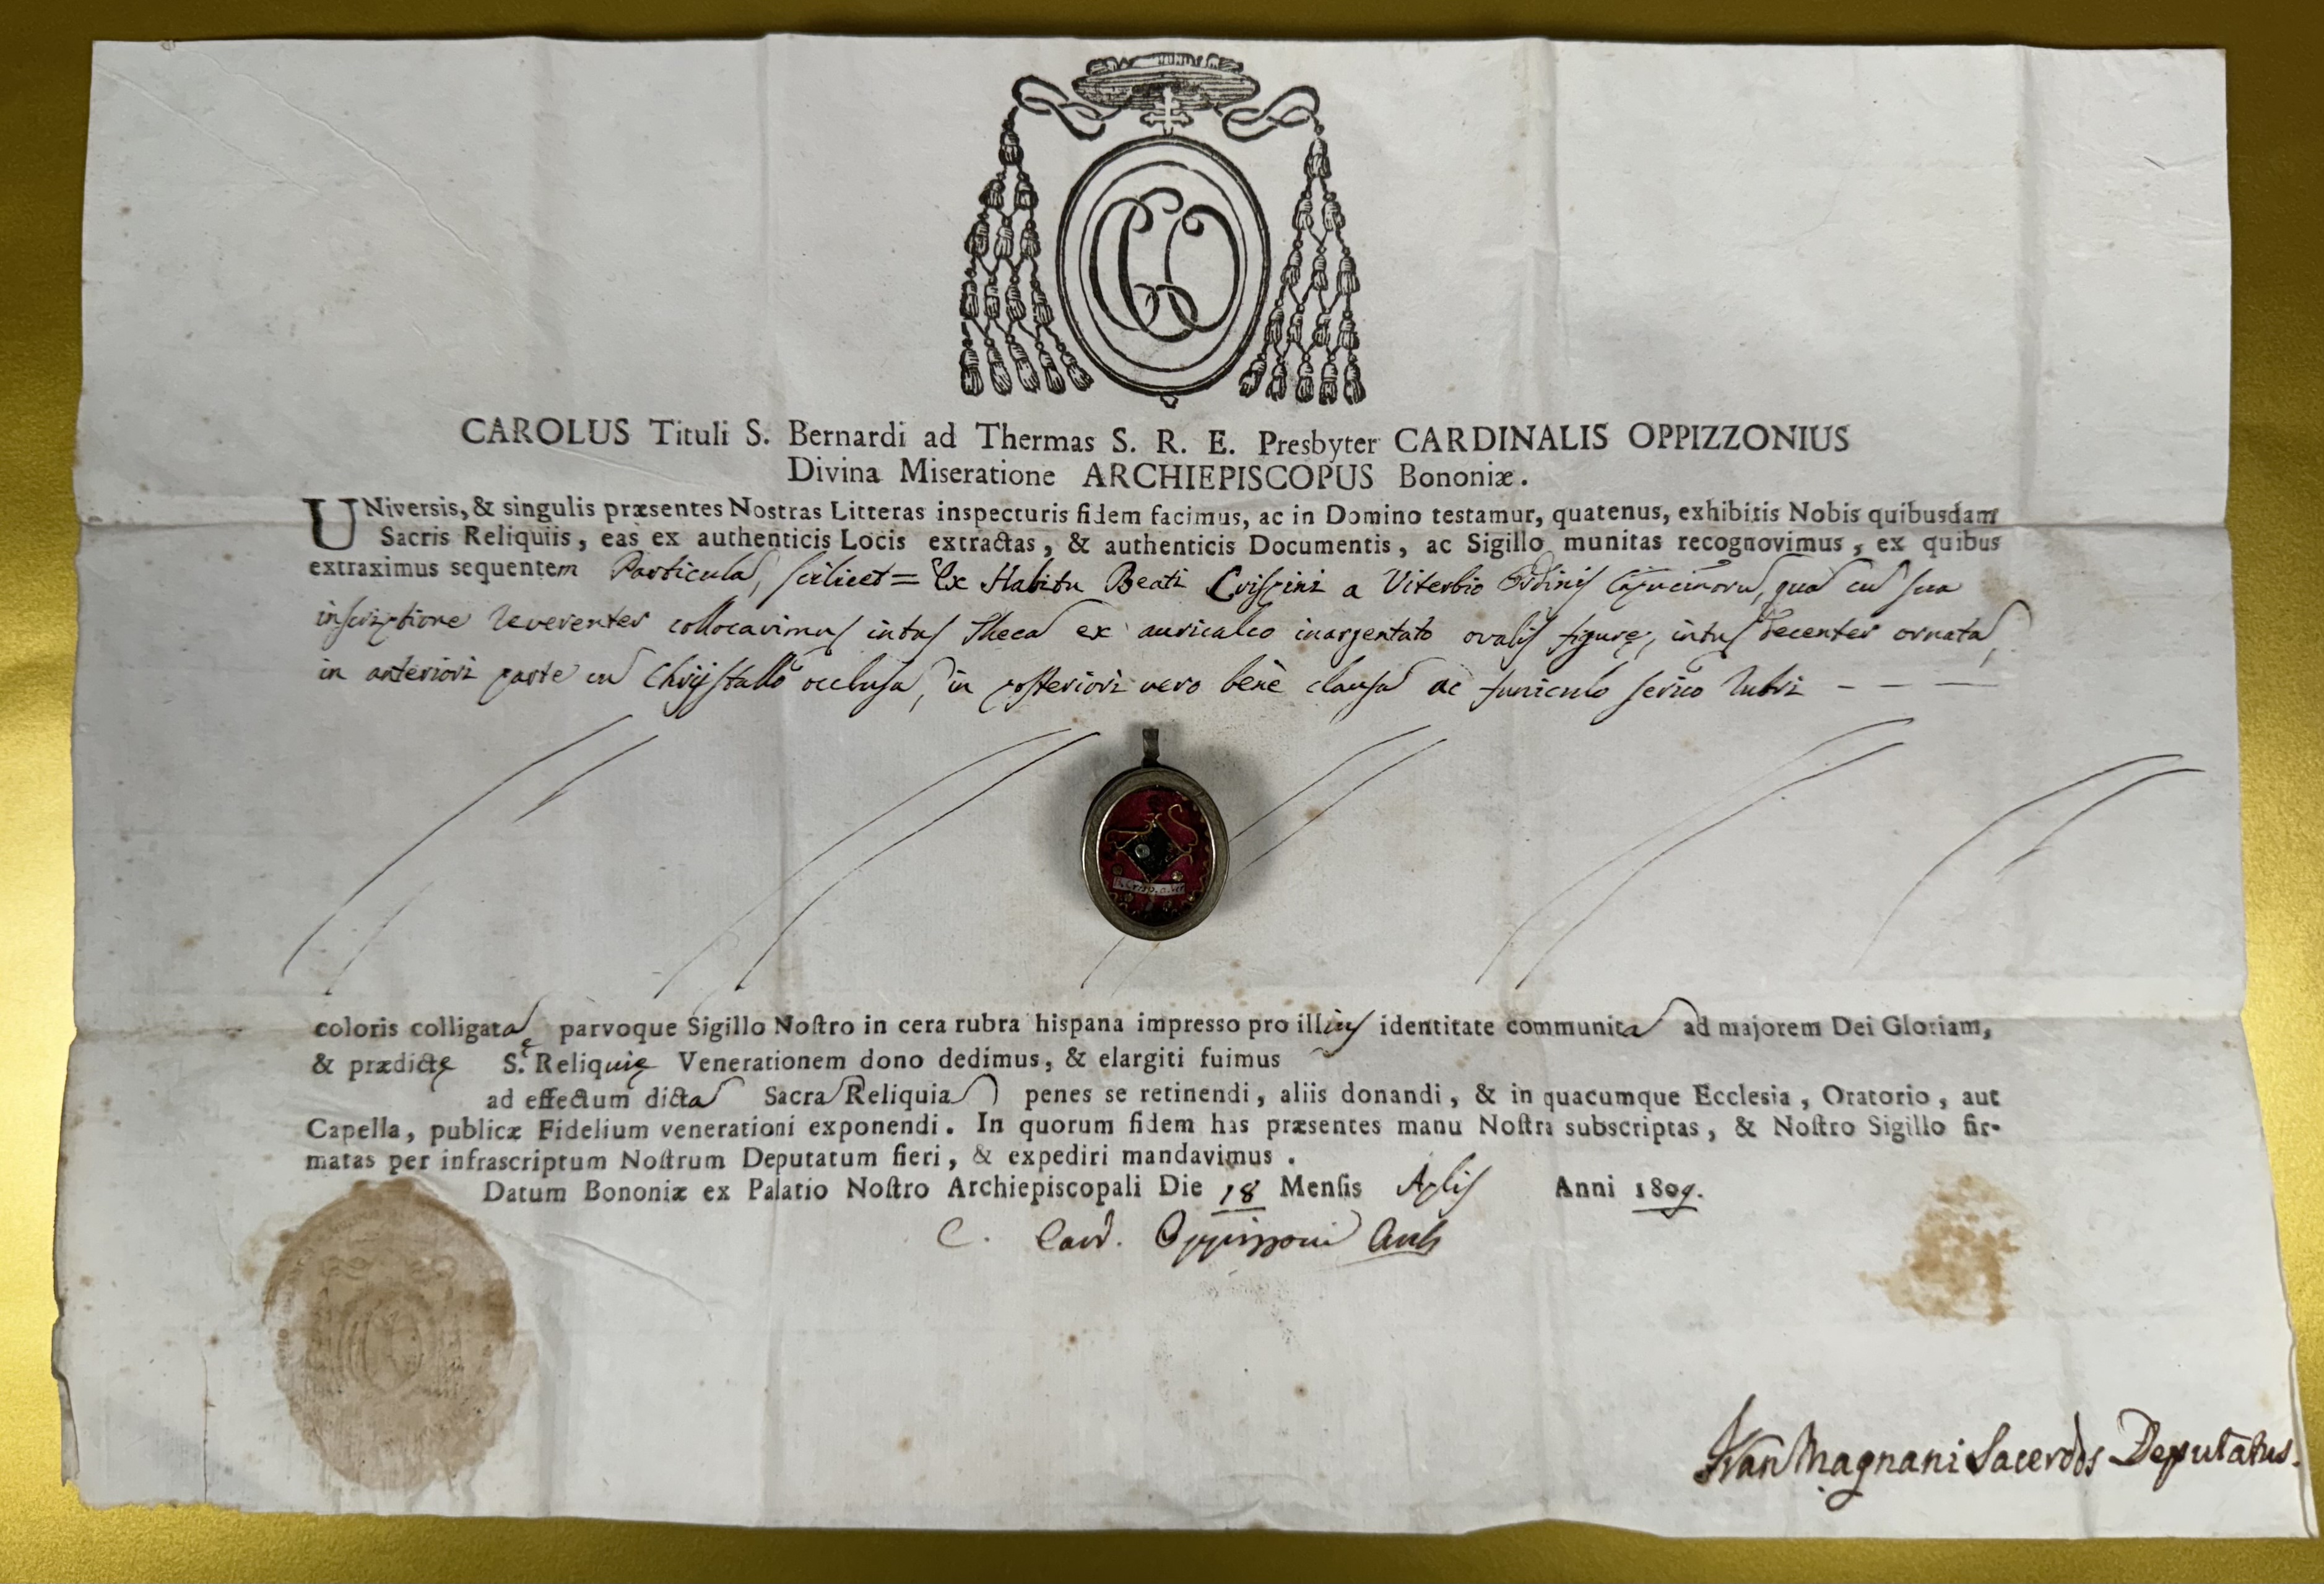 CO
CAROLUS Tituli S. Bernardi ad Thermas S. R. E. Presbyter CARDINALIS OPPIZZONIUS
Divina Miseratione ARCHIEPISCOPUS Bononiæ.
UNiversis, & singulis præsentes Nostras Litteras inspecturis fidem facimus, ac in Domino testamur, quatenus, exhibitis Nobis quibusdam
Sacris Reliquiis, eas ex authenticis Locis extractas, & authenticis Documentis, ac Sigillo munitas recognovimus, ex quibus
extraximus sequentem Particulã, scilicet = Ex Habitu Beati Crispini a Viterbio Ordinis Capucinorũ, quã cũ sua
inscriptione reverenter collocavimus intus Thecã ex auricalco inargentato ovalis figurę, intus decenter ornatã,
in anteriori parte cũ Chrijstallo occlusã, in posteriori vero benè clausã ac funiculo serico rubri - - -
B. Crisp. a Vit
coloris colligatã, parvoque Sigillo Noſtro in cera rubra hispana impresso pro illius identitate communitã ad majorem Dei Gloriam,
& prædictę S.ę Reliquię Venerationem dono dedimus, & elargiti fuimus
ad effectum dictã Sacrã Reliquiã penes se retinendi, aliis donandi, & in quacumque Ecclesia, Oratorio, aut
Capella, publicæ Fidelium venerationi exponendi. In quorum fidem has præsentes manu Noſtra subscriptas, & Noſtro Sigillo fir-
matas per infrascriptum Noſtrum Deputatum fieri, & expediri mandavimus.
Datum Bononiæ ex Palatio Noſtro Archiepiscopali Die 18 Menſis Aplis Anni 1809.
C. Card. Oppizzoni Arch
Ivan Magnani Sacerdos Deputatus.